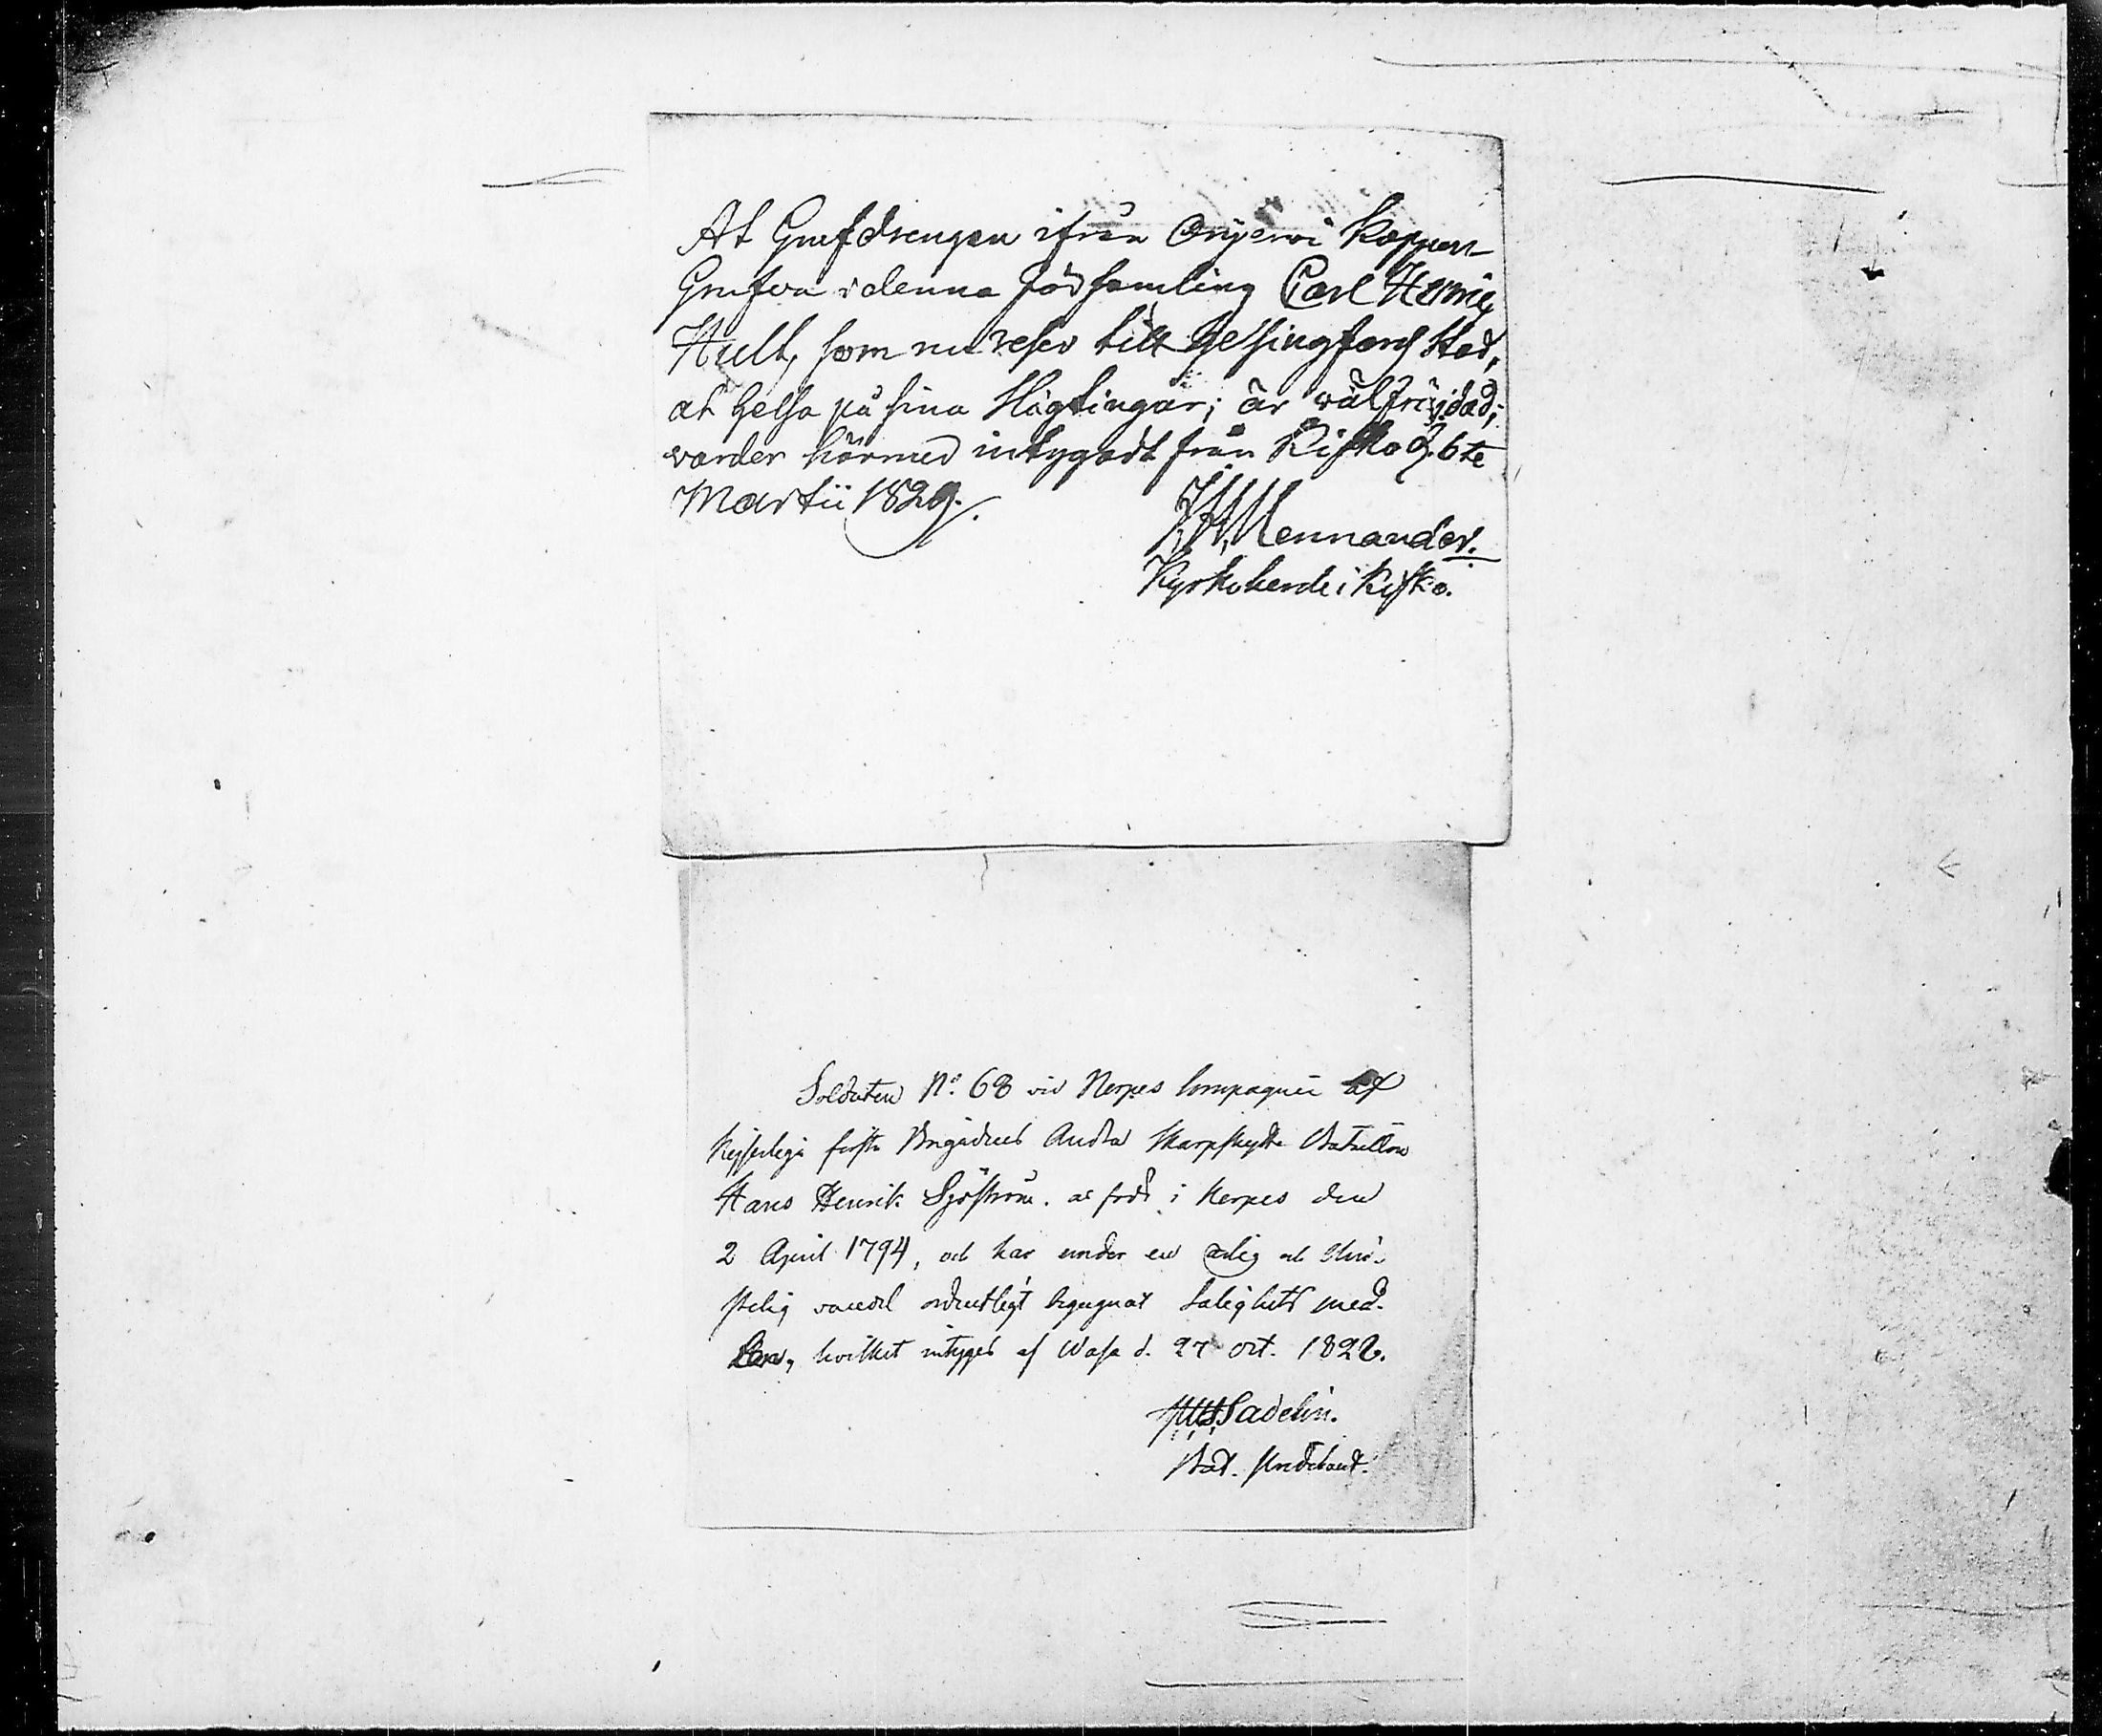 At Grufdrengen ifrån Orijerwi Koppar-
Grufva i denna församling Carl Henric
Hult, som nu reser till Helsingfors Stad,
at helsa på sina Slägtingar; är wälfräjdad;
warder härmed intygadt från Kisko d. 6te
Martii 1829.
Mennander.
Kyrkoherde i Kisko.
Soldaten No. 68 vid Nerpes Compagnie af
Kejserliga första Brigadens Andra Skarpskytte Bataillon
Hans Henrik Sjöström. är född i Nerpes den
2 April 1794, och har under en ärlig och Chri-
stelig vandel ordentligt begagnat Salighets med-
len, hvilket intygas af Wasa d. 27 Oct. 1822.
Sadelin.
Bat. Predikant.